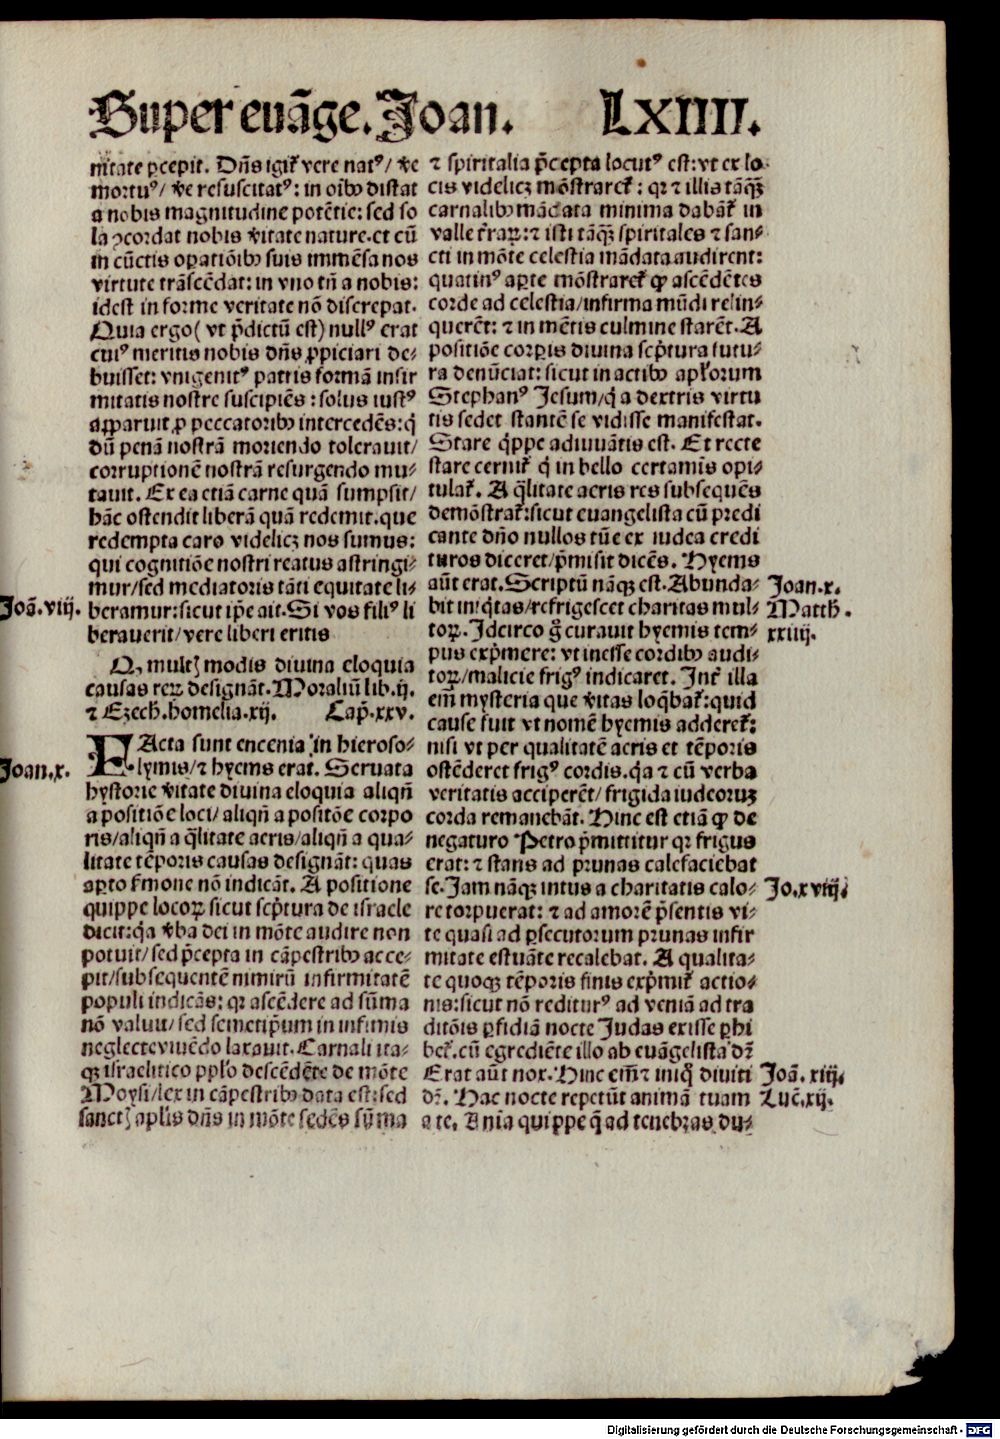 Super euãge. Joan. LXIIII.
nitate ꝑcepit. Dñs igit᷑ vere natꝰ/ ꝟe
mortuꝰ/ ꝟe resuscitatꝰ: in oĩbꝫ distat
a nobis magnitudine potẽtie: sed so
la ꝯcordat nobis ꝟitate nature. et cũ
in cũctis oꝑatiõibꝫ suis immẽsa nos
virtute trãscẽdat: in vno tñ a nobis:
idest in forme veritate nõ discrepat.
Quia ergo( vt p̃dictũ est) nullꝰ erat
cuiꝰ meritis nobis dñs ꝓpiciari de⸗
buisset: vnigenitꝰ patris formã infir
mitatis nostre suscipiẽs: solus iustꝰ
apparuit ꝓ peccatoribꝫ intercedẽs: q̇
dũ penã nostrã moriendo tolerauit/
corruptionẽ nostrã resurgendo mu⸗
tauit. Ex ea etiã carne quã sumpsit/
hãc ostendit liberã quã redemit. que
redempta caro videlicꝫ nos sumus:
qui cognitiõe nostri reatus astringi⸗
mur/ sed mediatoris tãti equitate li⸗
Joã. viij.
beramur: sicut ip̃e ait. Si vos filiꝰ li
berauerit/ vere liberi eritis
Q, multꝭ modis diuina eloquia
causas reꝝ designãt. Moraliũ lib. ij.
⁊ Ezech. homelia. xij. Cap̃. xxv.
FActa sunt encenia in hieroso⸗
Joan. x.
lymis/ ⁊ hyems erat. Seruata
hystorie ꝟitate diuina eloquia aliqñ
a positiõe loci/ aliqñ a positõe corpo
ris/ aliqñ a q̃litate aeris/ aliqñ a qua⸗
litate tẽporis causas designãt: quas
aꝑto ẜmone nõ indicãt. A positione
quippe locoꝝ sicut scp̃tura de israele
dicit: q̇a ꝟba dei in mõte audire non
potuit/ sed p̃cepta in cãpestribꝫ acce⸗
pit/ subsequentẽ nimirũ infirmitatẽ
populi indicãs: qꝛ ascẽdere ad sũma
nõ valuit/ sed semetip̃um in infimis
neglecte viuẽdo laxauit. Carnali ita⸗
qꝫ israelitico pplo descẽdẽte de mõte
Moysi/ lex in cãpestribꝫ data est: sed
sanctꝭ aplis dñs in mõte sedẽs sũma
⁊ spiritalia p̃cepta locutꝰ est: vt ex lo⸗
cis videlicꝫ mõstraret᷑: qꝛ ⁊ illis tãq̃ꝫ
carnalibꝫ mãdata minima dabãt᷑ in
valle t᷑raꝝ: ⁊ isti tãq̃ꝫ spiritales ⁊ san⸗
cti in mõte celestia mãdata audirent:
quatinꝰ aꝑte mõstraret᷑ ꝙ ascẽdẽtes
corde ad celestia/ infirma mũdi relin⸗
querẽt: ⁊ in mẽtis culmine starẽt. A
positiõe corꝑis diuina scp̃tura futu⸗
ra denũciat: sicut in actibꝫ apl̃orum
Stephanꝰ Jesum/ q̇ a dextris virtu
tis sedet stantẽ se vidisse manifestat.
Stare q̇ppe adiuuãtis est. Et recte
stare cernit᷑ q̇ in bello certamĩs opi⸗
tulat᷑. A q̃litate aeris res subsequẽs
demõstrat᷑: sicut euangelista cũ predi
cante dño nullos tũc ex iudea credi
turos diceret/ p̃misit dicẽs. Hyems
aũt erat. Scriptũ nãqꝫ est. Abunda⸗
Joan. x.
bit iniq̇tas/ refrigescet charitas mul⸗
Matth.
toꝝ. Jdcirco g̃ curauit hyemis tem⸗
xxiiij.
pus exp̃mere: vt inesse cordibꝫ audi⸗
toꝝ/ malicie frigꝰ indicaret. Int᷑ illa
em̃ mysteria que ꝟitas loq̃bat᷑: quid
cause fuit vt nomẽ hyemis adderet᷑:
nisi vt per qualitatẽ aeris et tẽporis
ostẽderet frigꝰ cordis. q̇a ⁊ cũ verba
veritatis acciperẽt/ frigida iudeoruꝫ
corda remanebãt. Hinc est etiã ꝙ de
negaturo Petro p̃mittitur qꝛ frigus
erat: ⁊ stans ad prunas calefaciebat
se. Jam nãqꝫ intus a charitatis calo⸗
Jo. xviij.
re torpuerat: ⁊ ad amorẽ p̃sentis vi⸗
te quasi ad ꝑsecutorum prunas infir
mitate estuãte recalebat. A qualita⸗
te quoqꝫ tẽporis finis exp̃mit᷑ actio⸗
nis: sicut nõ rediturꝰ ad veniã ad tra
ditõis ꝑfidiã nocte Judas exisse ꝑhi
bet᷑. cũ egrediẽte illo ab euãgelista dꝛ̃
Erat aũt nox. Hinc em̃ ⁊ iniq̇ diuiti
Joã. xiij.
dꝛ̃. Hac nocte repetũt animã tuam
Luc̃. xij.
a te. Anĩa quippe q̃ ad tenebras du⸗
Digitalisierung gefördert durch die Deutsche Forschungsgemeinschaft - DFG